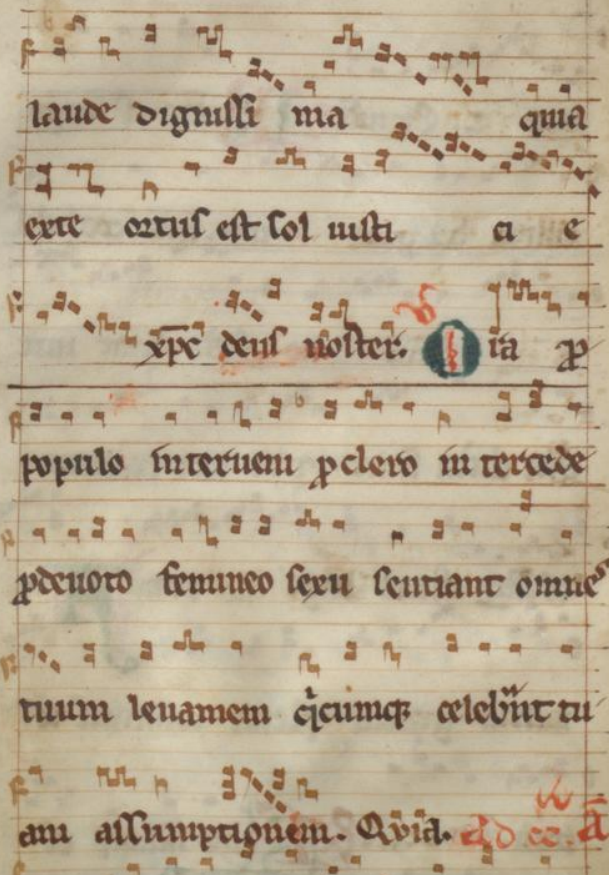 laude dignissi ma quia
exte ortus est sol iusti ci e
xp̅c deus noster. ℣ Ora ꝓ
populo interueni ꝓ clero in tercede
ꝓ deuoto femineo sexu sentiant omnes
tuum leuamem q̇cumq celebrͣnt tu
am assumptionem. Quia.